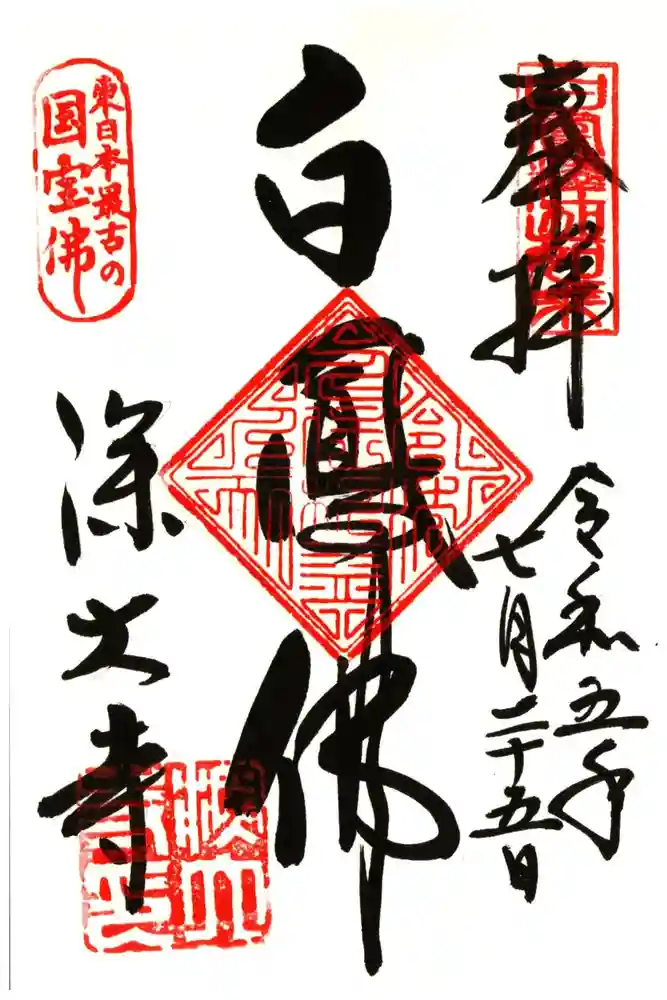 奉拝
令和五年
七月二十五日
白鳳佛
東日本最古の
国宝佛
深大寺